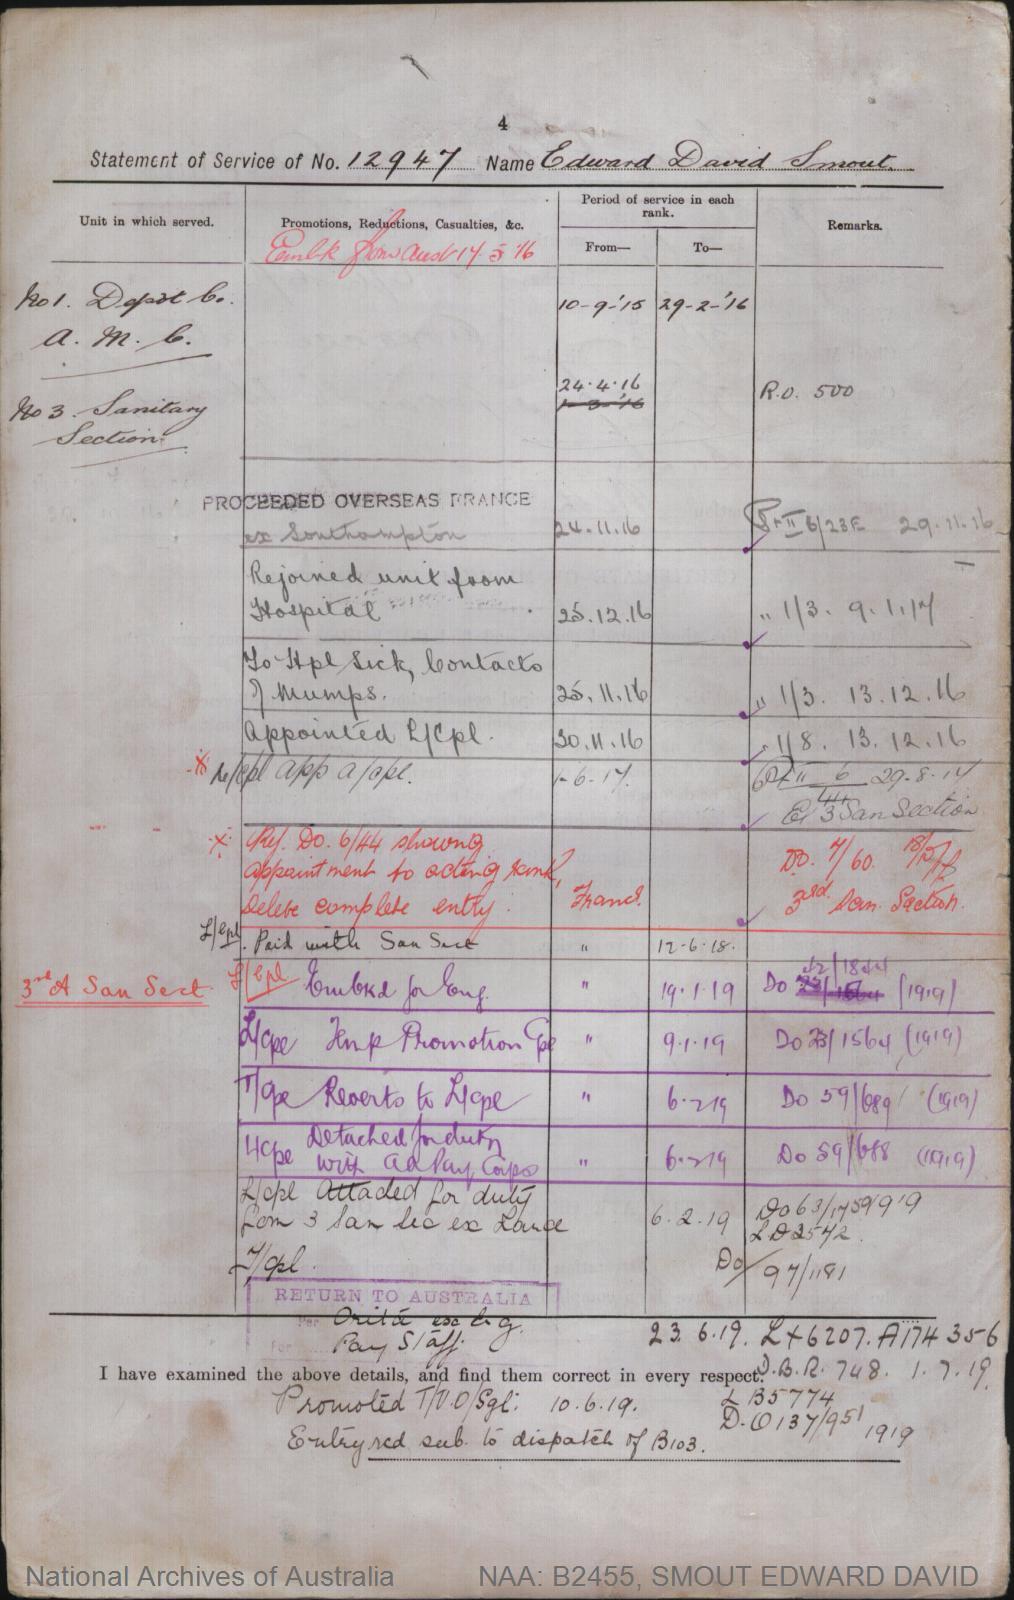 4
Statement of Service of No. 12947 Name Edward David Smout.
Unit in which served.
Promotions, Reductions, Casualties, &c.
Period of service in each rank.
From—
To—
Remarks.
Embk from Aust 17.5.16
No 1. Depôt Co.
A. M. C.
10-9-'15 29-2-'16
No 3. Sanitary
Section.
24.4.16
1-3-'16
R.O. 500
PROCEEDED OVERSEAS FRANCE
ex Southampton 24.11.16 Pt II 6/23E 29.11.16
Rejoined unit from
Hospital 25.12.16 " 1/3. 9.1.17
To Hpl Sick, Contacts
of Mumps. 25.11.16 " 1/3. 13.12.16
Appointed L/Cpl. 30.11.16 " 1/8. 13.12.16
L/Cpl app a/cpl. 1-6-17. Pt II 6 29-8-17
3 San Section
Ref. Do. 6/44 showing
appointment to acting rank,
Delete complete entry. France. Do. 7/60.
3rd. San. Section.
L/Cpl. Paid with San Sect " 12-6-18.
3rd A San Sect. L/Cpl Embkd for Eng. " 19.1.19 Do 42/1844 (1919)
L/Cpl Temp Promotion Cpl " 9.1.19 Do 23/1564 (1919)
T/Cpl Reverts to L/Cpl " 6.2.19 Do 59/689 (1919)
L/Cpl Detached for duty
with Aa Pay Corps " 6.2.19 Do 59/688 (1919)
L/Cpl Attached for duty
from 3 San Sec ex 6.2.19 Do 63/1759 '9'9
L D 2572.
T/Cpl. Do/97/1181
RETURN TO AUSTRALIA
Per Orita ex Eng.
For Pay Staff. 23.6.19. Lx6207. A174356
I have examined the above details, and find them correct in every respect. D.B.R. 748. 1.7.19.
Promoted T/V.O/Sgt: 10.6.19. L B5774
D.O 137/951 1919
Entry rcd sub. to dispatch of B103.
National Archives of Australia
NAA: B2455, SMOUT EDWARD DAVID